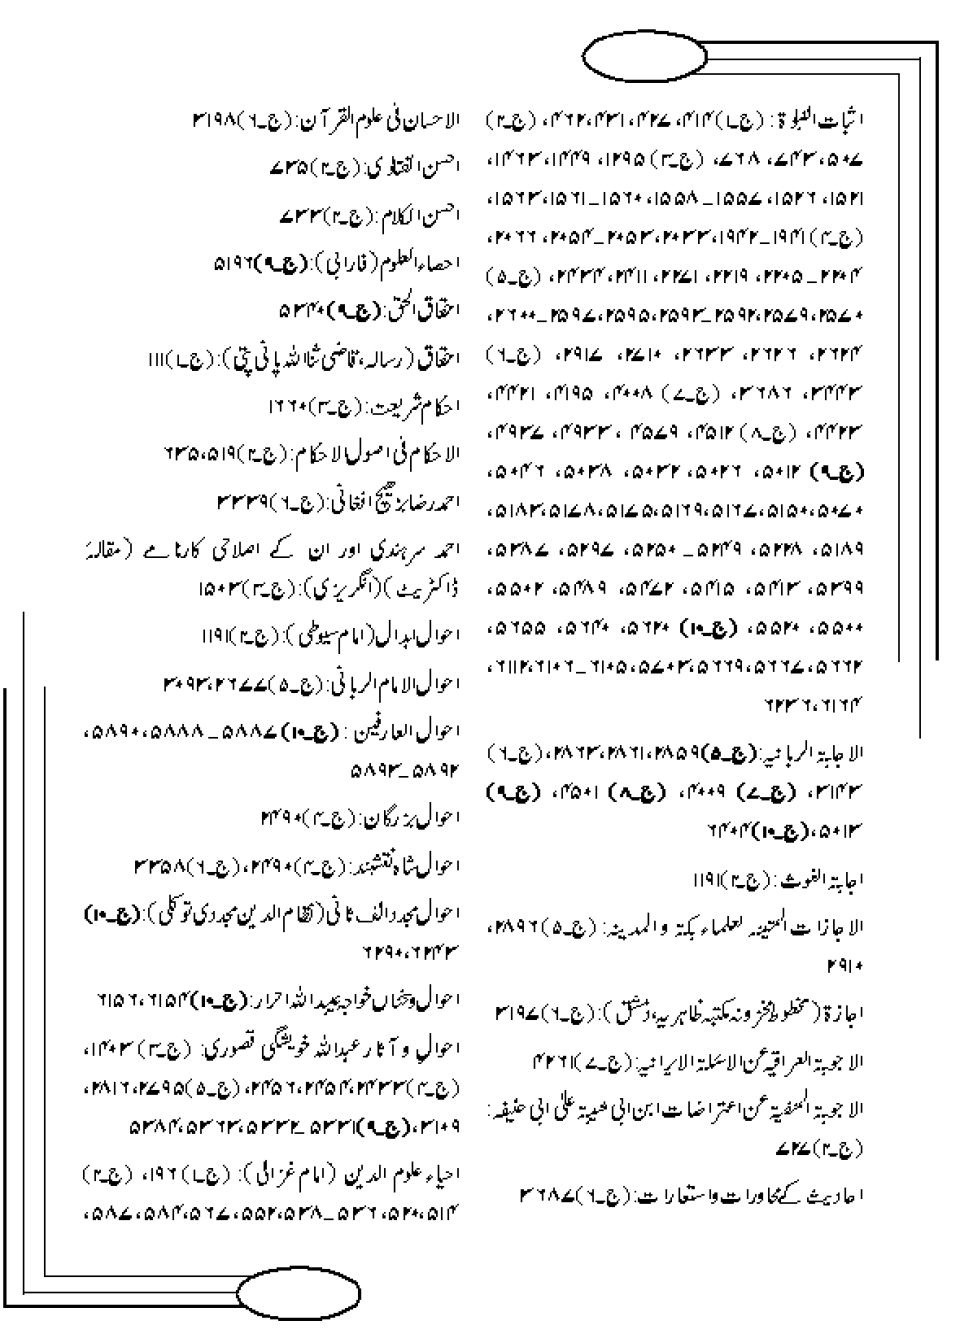 اثبات النبوۃ: (ج۔۱)۴۱۴، ۴۲۷، ۴۳۱، ۴۶۲، (ج۔۲)
۵۰۷، ۷۴۳، ۷۶۸، (ج۔۳) ۱۲۹۵، ۱۴۴۹، ۱۴۶۳،
۱۵۲۱، ۱۵۲۶، ۱۵۵۷_۱۵۵۸، ۱۵۶۰_۱۵۶۱، ۱۵۶۳،
(ج۔۴)۱۹۴۱_۱۹۴۲، ۲۰۳۳، ۲۰۵۳_۲۰۵۴، ۲۰۶۶،
۲۲۰۴_۲۲۰۵، ۲۲۱۹، ۲۲۷۱، ۲۴۱۱، ۲۴۳۴، (ج۔۵)
۲۵۷۰، ۲۵۷۹، ۲۵۹۲_۲۵۹۳، ۲۵۹۵، ۲۵۹۷_۲۶۰۰،
۲۶۲۴، ۲۶۲۶، ۲۶۳۳، ۲۷۱۰، ۲۹۱۷، (ج۔۶)
۳۴۴۳، ۳۶۸۶، (ج۔۷) ۴۰۰۸، ۴۱۹۵، ۴۴۲۱،
۴۴۲۳، (ج۔۸) ۴۵۱۲، ۴۵۷۹، ۴۹۳۳، ۴۹۳۷،
(ج۔۹) ۵۰۱۲، ۵۰۲۶، ۵۰۳۲، ۵۰۳۸، ۵۰۴۶،
۵۰۷۰، ۵۱۵۰، ۵۱۶۷، ۵۱۶۹، ۵۱۷۵، ۵۱۷۸، ۵۱۸۳،
۵۱۸۹، ۵۲۲۸، ۵۲۴۹_۵۲۵۰، ۵۲۹۷، ۵۳۸۷،
۵۳۹۹، ۵۴۱۳، ۵۴۱۵، ۵۴۷۲، ۵۴۸۹، ۵۵۰۲،
۵۵۰۰، ۵۵۲۰، (ج۔۱۰) ۵۶۲۰، ۵۶۴۰، ۵۶۵۵،
۵۶۶۲، ۵۶۶۷، ۵۶۶۹، ۵۷۰۳، ۶۱۰۵_۶۱۰۶، ۶۱۱۲،
۶۱۶۴، ۶۲۳۶
الاجابۃ الربانیہ: (ج۔۵)۲۸۵۹، ۲۸۶۱، ۲۸۶۳، (ج۔۶)
۳۱۴۳، (ج۔۷) ۴۰۰۹، (ج۔۸) ۴۵۰۱، (ج۔۹)
۵۰۱۳، (ج۔۱۰)۶۴۰۴
اجابۃ الغوث: (ج۔۲)۱۱۹۱
الاجازات المتینہ لعلماء بکۃ والمدینہ: (ج۔۵)۲۸۹۶،
۲۹۱۰
اجازۃ (مخطوطہ مخزونہ مکتبہ ظاہریہ، دمشق): (ج۔۶)۳۱۹۷
الاجوبۃ العراقیہ عن الاسئلۃ الایرانیہ: (ج۔۷)۴۲۶۱
الاجوبۃ المنفیۃ عن اعتراضات ابن ابی شیبۃ علیٰ ابی حنیفہ:
(ج۔۲)۷۲۷
احادیث کے محاورات واستعارات: (ج۔۶)۳۶۸۷
الاحسان فی علوم القرآن: (ج۔۶)۳۱۹۸
احسن الفتاوٰی: (ج۔۲)۷۳۵
احسن الکلام: (ج۔۲)۷۳۳
احصاء العلوم (فارابی): (ج۔۹)۵۱۹۶
احقاق الحق: (ج۔۹)۵۳۴۰
احقاق (رسالہ، قاضی ثنا اللہ پانی پتی): (ج۔۱)۱۱۱
احکام شریعت: (ج۔۳)۱۶۶۰
الاحکام فی اصول الاحکام: (ج۔۲)۵۱۹، ۶۳۵
احمد رضا بڑھیچ افغانی: (ج۔۶)۳۳۳۹
احمد سرہندی اور ان کے اصلاحی کارنامے (مقالہٗ
ڈاکٹریٹ)(انگریزی): (ج۔۳)۱۵۰۳
احوال ابدال (امام سیوطی): (ج۔۲)۱۱۹۱
احوال الامام الربانی: (ج۔۵)۲۶۷۷، ۳۰۹۳
احوال العارفین: (ج۔۱۰)۵۸۸۷_۵۸۸۸، ۵۸۹۰،
۵۸۹۲_۵۸۹۳
احوال بزرگان: (ج۔۴)۲۴۹۰
احوال شاہ نقشبند: (ج۔۴)۲۴۹۰، (ج۔۶)۳۳۵۸
احوال مجدد الف ثانی (نظام الدین مجددی توکلی): (ج۔۱۰)
۶۲۴۳، ۶۲۹۰
احوال وسخناں خواجہ عبید اللہ احرار: (ج۔۱۰)۶۱۵۴، ۶۱۵۶
احوال و آثار عبداللہ خویشگی قصوری: (ج۔۳)۱۴۰۳،
(ج۔۴)۲۴۳۳، ۲۴۵۴، ۲۴۵۶، (ج۔۵)۲۷۹۵، ۲۸۱۶،
۳۱۰۹، (ج۔۹)۵۳۳۱_۵۳۳۲، ۵۳۶۳، ۵۳۸۴
احیاء علوم الدین (امام غزالی): (ج۔۱)۱۹۶، (ج۔۲)
۵۱۴، ۵۲۰، ۵۳۶_۵۳۸، ۵۵۲، ۵۶۷، ۵۸۴، ۵۸۷،